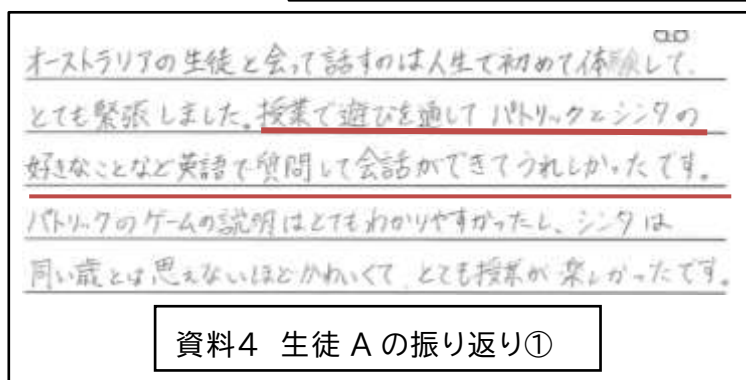 オーストラリアの生徒と会って話すのは人生で初めて体験して、
とても緊張しました。授業で遊びを通してパトリックとシンタの
好きなことなど英語で質問して会話ができてうれしかったです。
パトリックのゲームの説明はとてもわかりやすかったし、シンタは
同い歳とは思えないほどかわいくて、とても授業が楽しかったです。
資料4 生徒 A の振り返り①